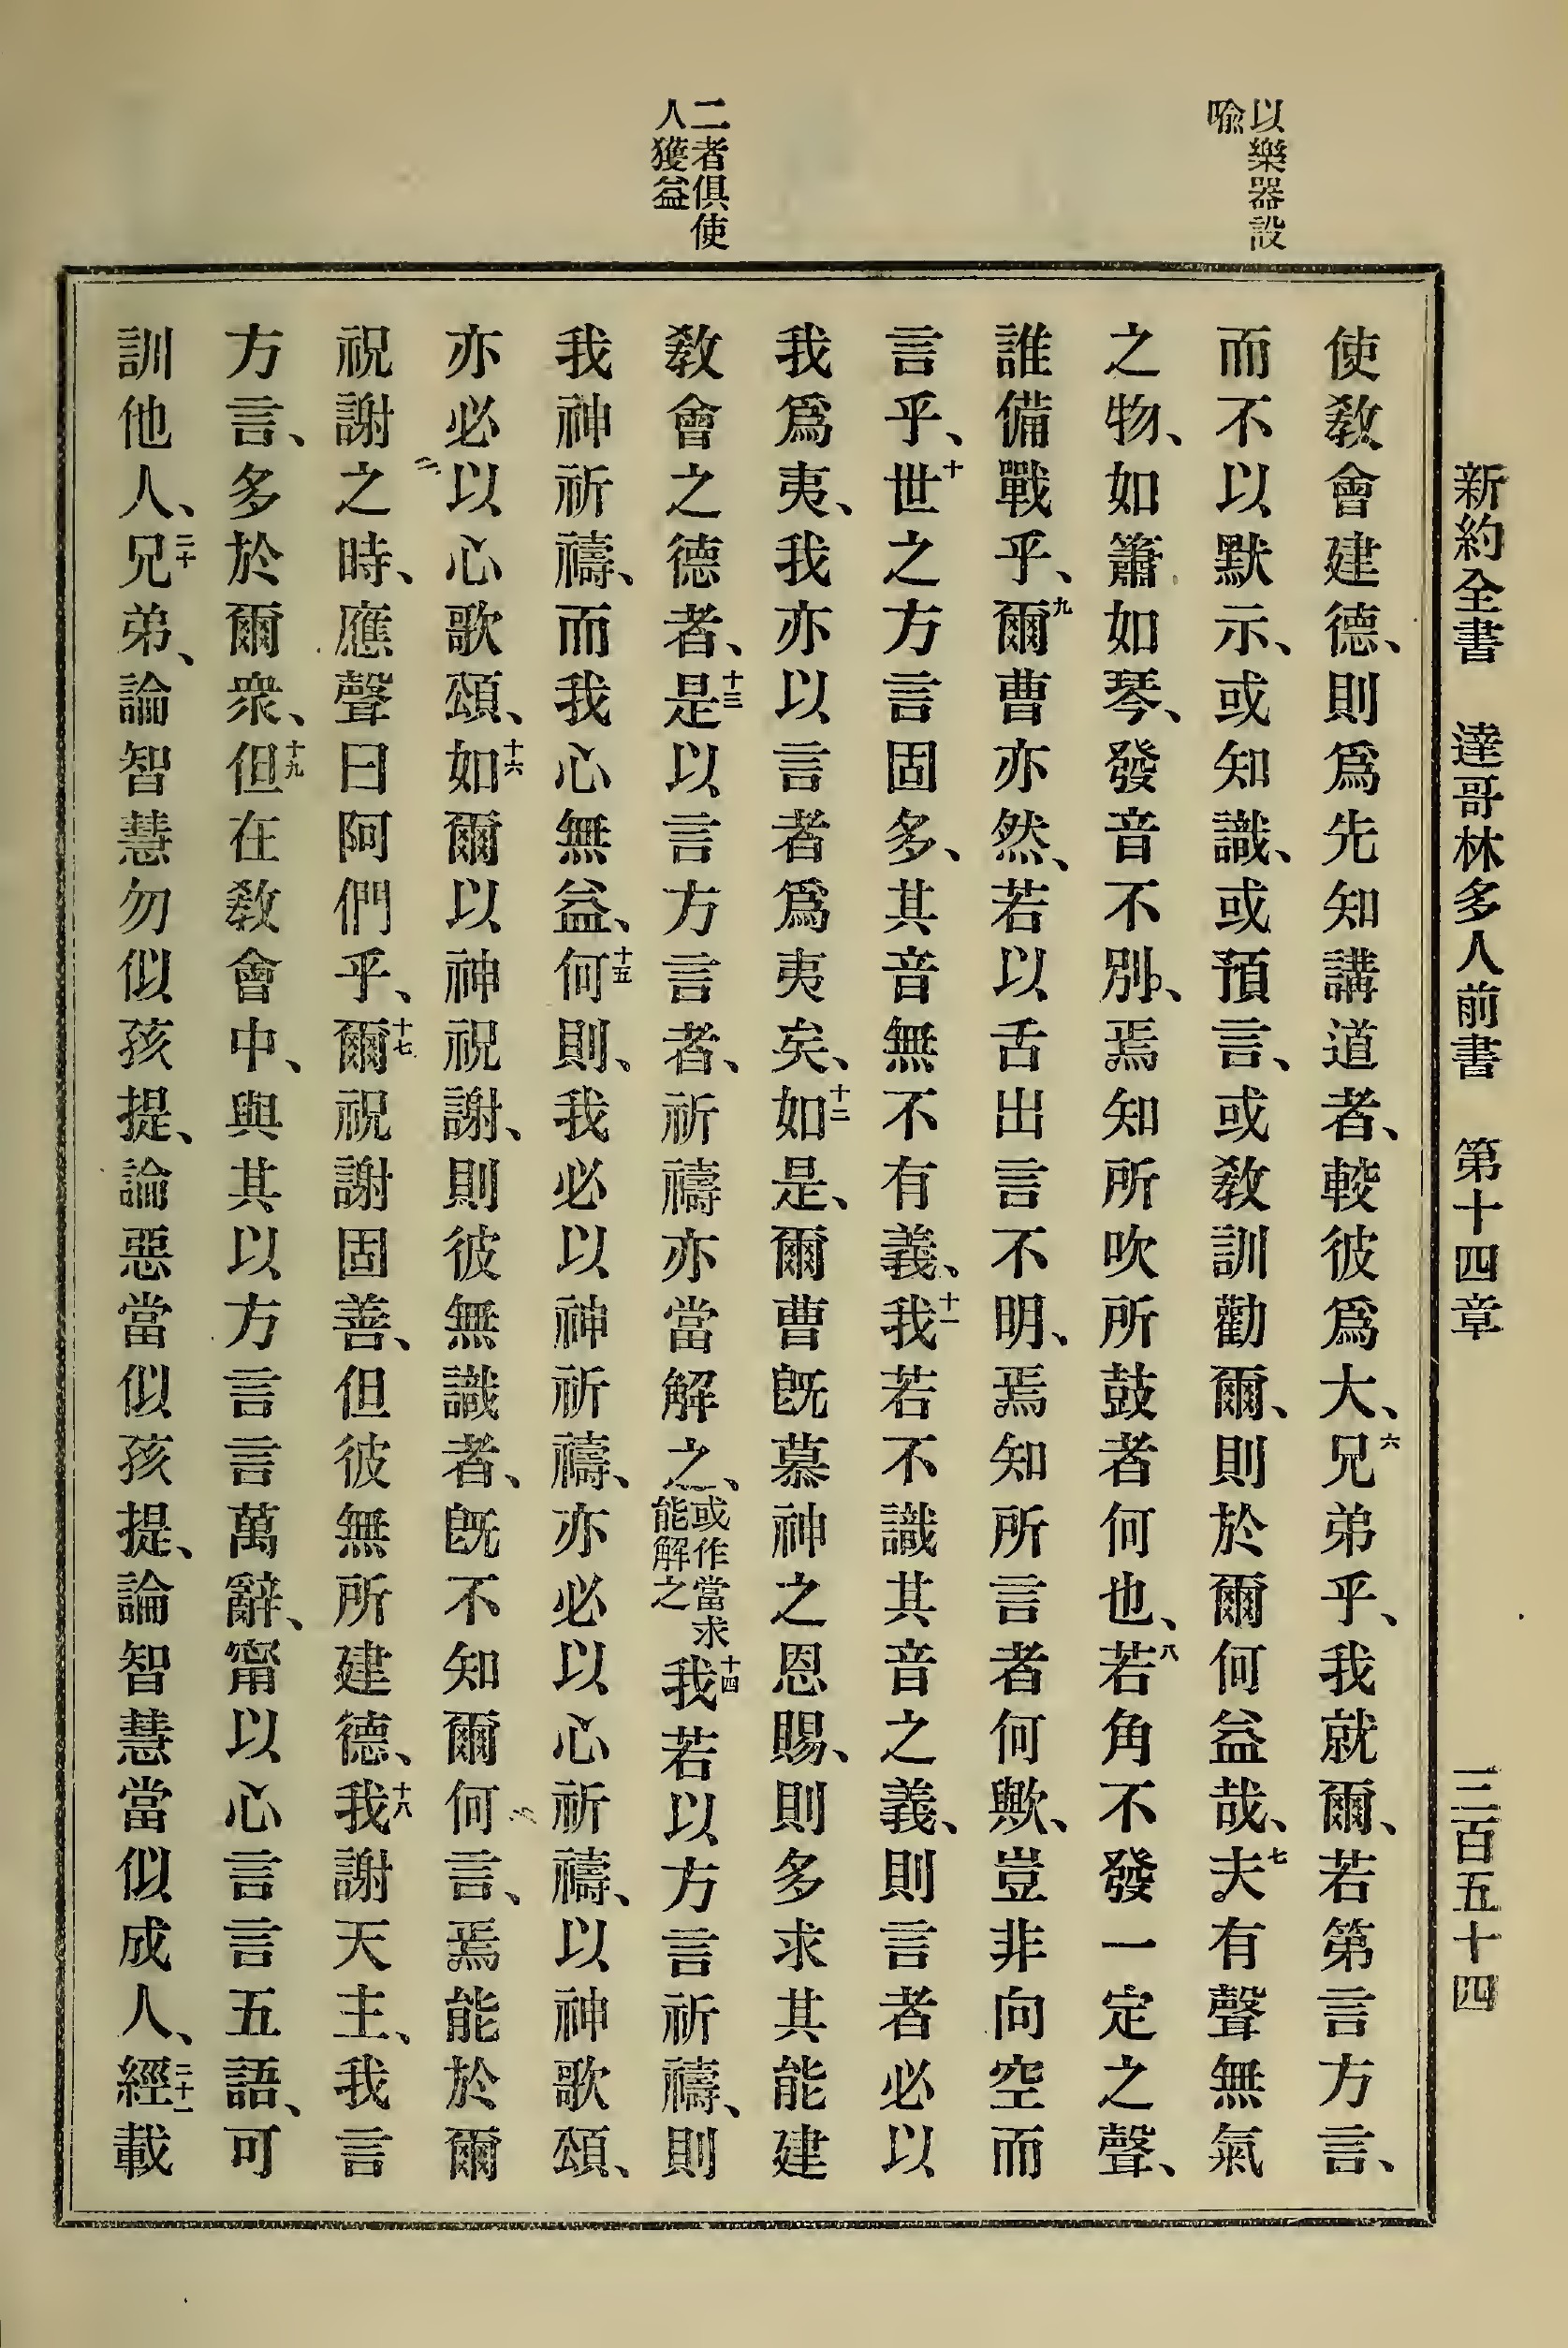 新約全書 達哥林多人前書 第十四章 三百五十四
以樂器設
喩
二者俱使
人獲益
使敎會建德、則爲先知講道者、較彼爲大、六兄弟乎、我就爾、若第言方言、
而不以默示、或知識、或預言、或敎訓勸爾、則於爾何益哉、七夫有聲無氣
之物、如簫如琴、發音不別、焉知所吹所鼓者何也、八若角不發一定之聲、
誰備戰乎、九爾曹亦然、若以舌出言不明、焉知所言者何歟、豈非向空而
言乎、十世之方言固多、其音無不有義、十一我若不識其音之義、則言者必以
我爲夷、我亦以言者爲夷矣、十二如是、爾曹旣慕神之恩賜、則多求其能建
敎會之德者、十三是以言方言者、祈禱亦當解之、或作當求能解之十四我若以方言祈禱、則
我神祈禱、而我心無益、十五何則、我必以神祈禱、亦必以心祈禱、以神歌頌、
亦必以心歌頌、十六如爾以神祝謝、則彼無識者、旣不知爾何言、焉能於爾
祝謝之時、應聲曰阿們乎、十七爾祝謝固善、但彼無所建德、十八我謝天主、我言
方言、多於爾衆、十九但在敎會中、與其以方言言萬辭、甯以心言言五語、可
訓他人、二十兄弟、論智慧勿似孩提、論惡當似孩提、論智慧當似成人、二十一經載